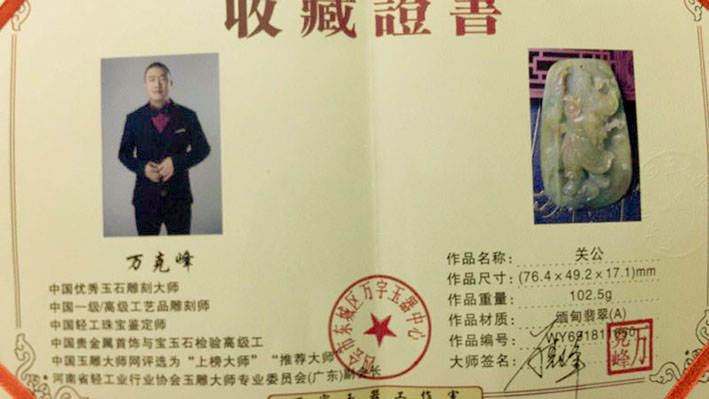 收藏證書
万克峰
中国优秀玉石雕刻大师
中国一级/高级工艺品雕刻师
中国轻工珠宝鉴定师
中国贵金属首饰与宝玉石检验高级工
中国玉雕大师网评选为“上榜大师”“推荐大师”
河南省轻工业行业协会玉雕大师专业委员会(广东)副会长
市东城区万字玉器中心
作品名称: 关公
作品尺寸: (76.4x49.2x17.1)mm
作品重量: 102.5g
作品材质: 缅甸翡翠(A)
作品编号:
大师签名:
万克峰